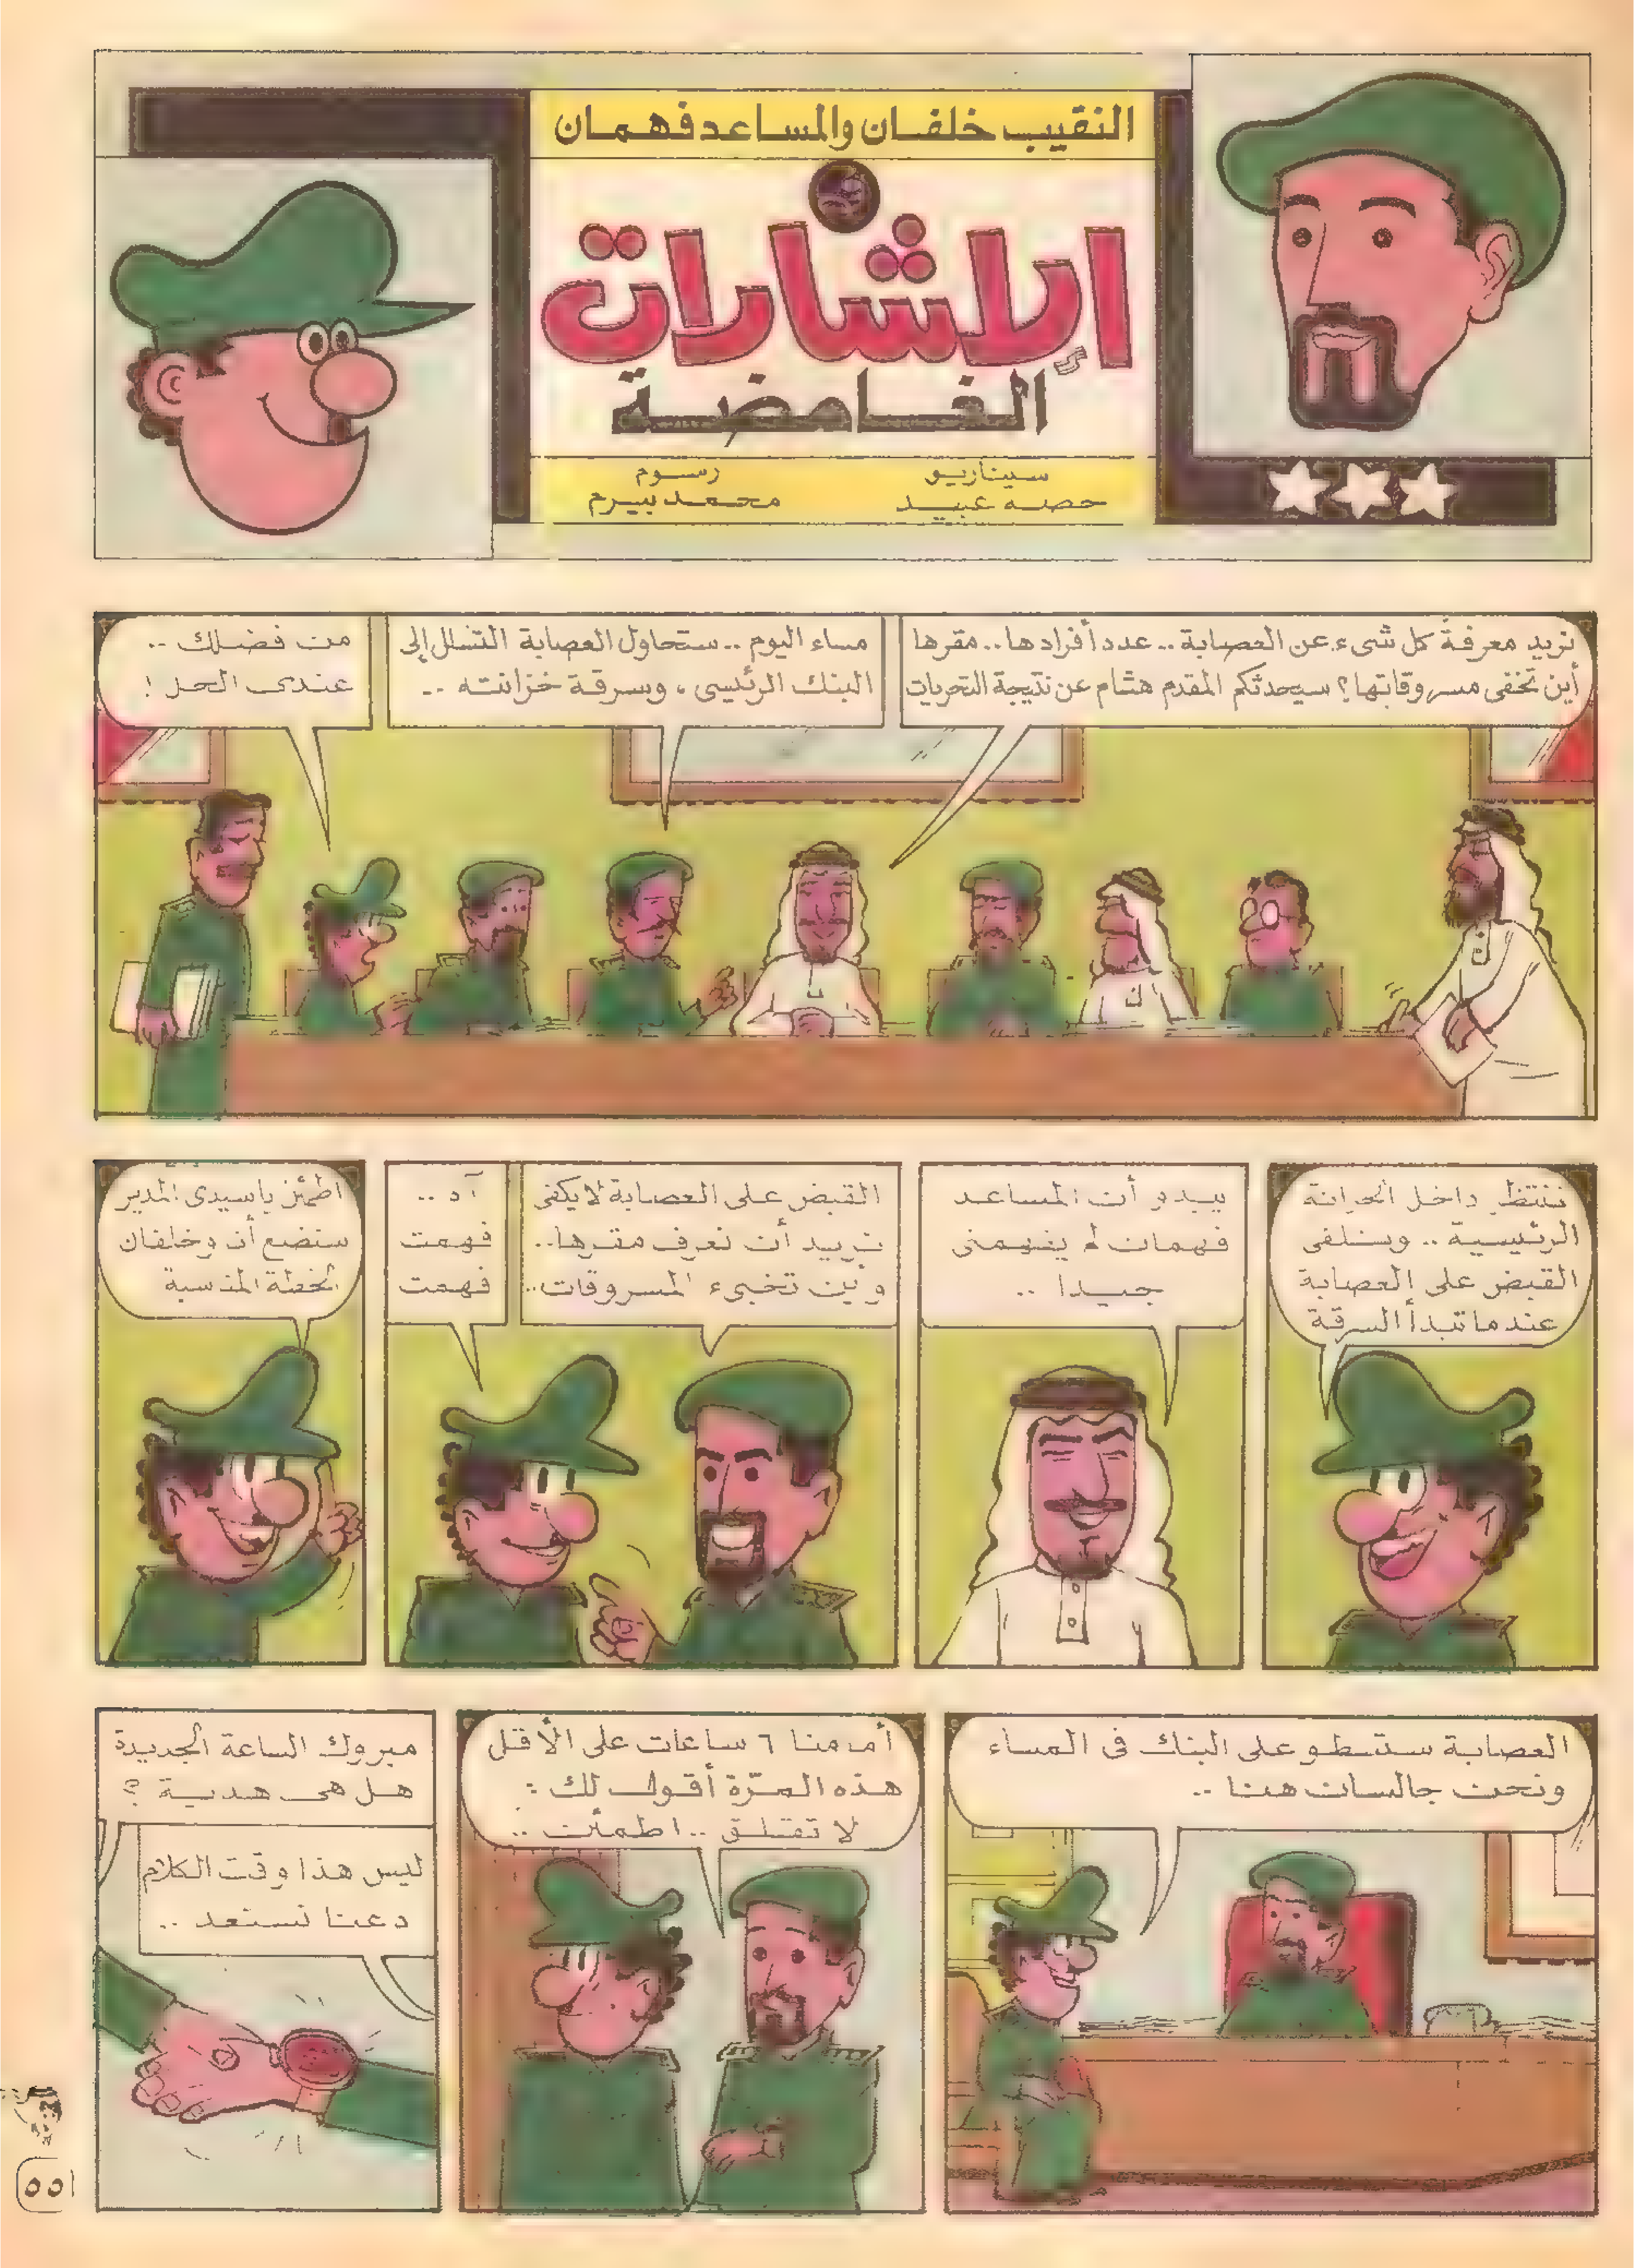 النقيب خلفان والمساعد فهمان
الإشارات
الغامضة
سيناريو
حصه عبيد
رسوم
محمد بيرم
نريد معرفة كل شىء عن العصابة .. عدد أفرادها .. مقرها
أين تخفى مسروقاتها؟ سيحدثكم المقدم هشام عن نتيجة التحريات
مساء اليوم .. ستحاول العصابة التسلل إلى
البنك الرئيسى ، وسرقة خزانته ..
من فضلك ..
عندى الحل !
ننتظر داخل الخزانة
الرئيسية .. وسنلقى
القبض على العصابة
عندما تبدأ السرقة
يبدو أن المساعد
فهمان لم يفهمنى
جيدا ..
القبض على العصابة لا يكفى
نريد أن نعرف مقرها ..
وأين تخبىء المسروقات ..
آه ..
فهمت
فهمت
اطمئن يا سيدى المدير
سنضع أنا وخلفان
الخطة المناسبة
العصابة ستسطو على البنك فى المساء
ونحن جالسان هنا ..
أمامنا ٦ ساعات على الأقل
هذه المرّة أقول لك :
لا تقلق .. اطمئن ..
مبروك الساعة الجديدة
هل هى هدية ؟
ليس هذا وقت الكلام
دعنا نستعد ..
٥٥